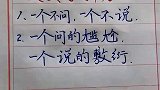 1.一个不问,一个不说.
2.一个问的尴尬
一个说的敷衍.